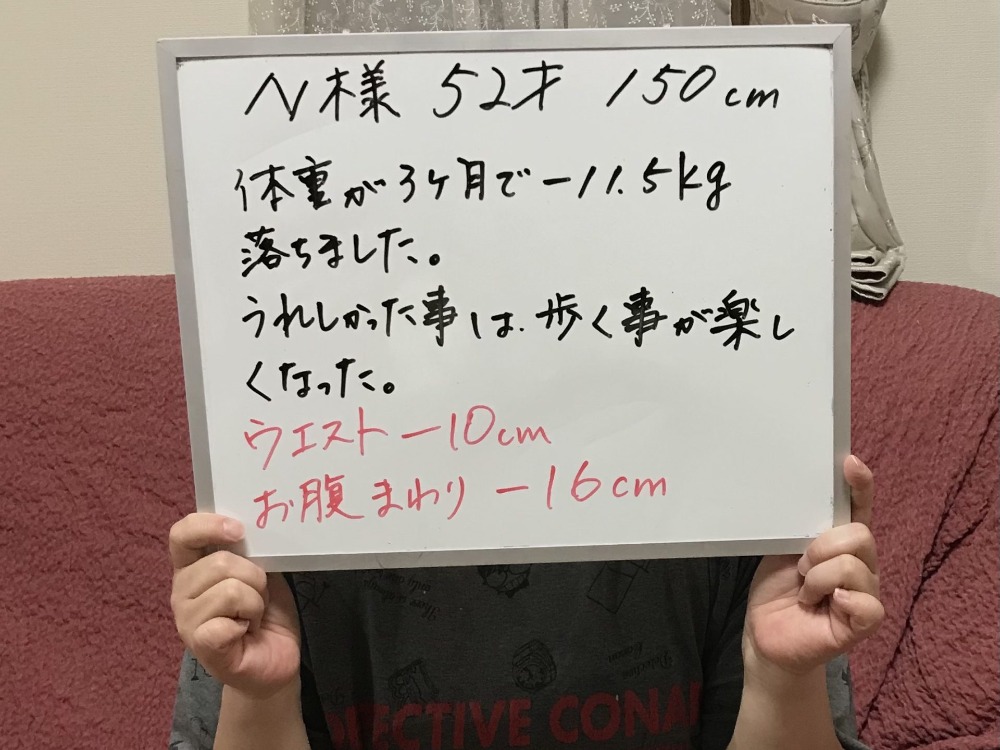 N様 52才 150cm
体重が3ヶ月で−11.5kg
落ちました。
うれしかった事は、歩く事が楽し
くなった。
ウエスト −10cm
お腹まわり −16cm
DETECTIVE CONAN